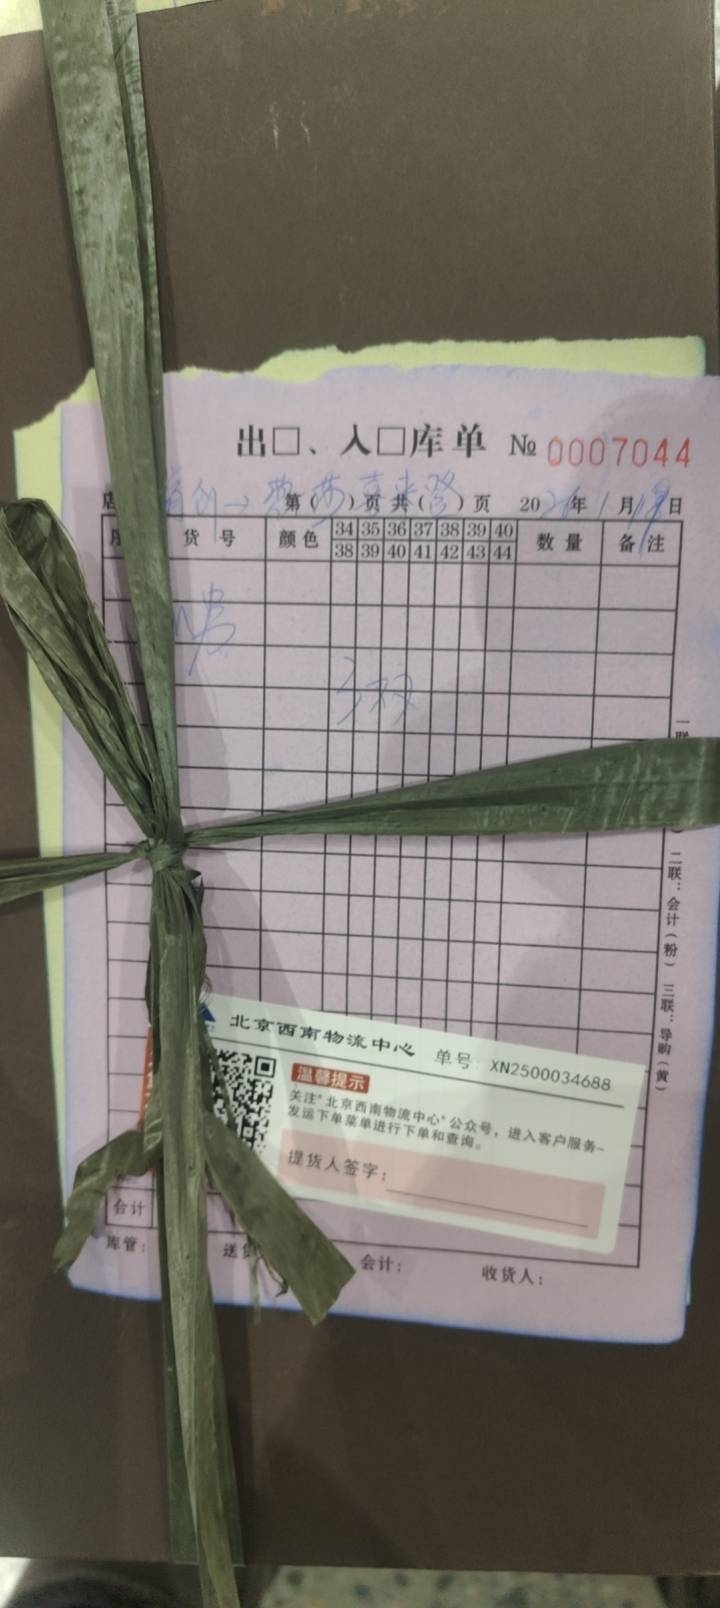 出□、入□库单 № 0007044
店 首创→ 第( )页 共( )页 20 年1月 日
货号 颜色 34 35 36 37 38 39 40 数量 备注
38 39 40 41 42 43 44
二联：会计（粉） 三联：导购（黄）
北京西南物流中心 单号 XN2500034688
温馨提示
关注"北京西南物流中心"公众号，进入客户服务-
发运下单菜单进行下单和查询。
提货人签字：
合计
库管： 送货 会计： 收货人：